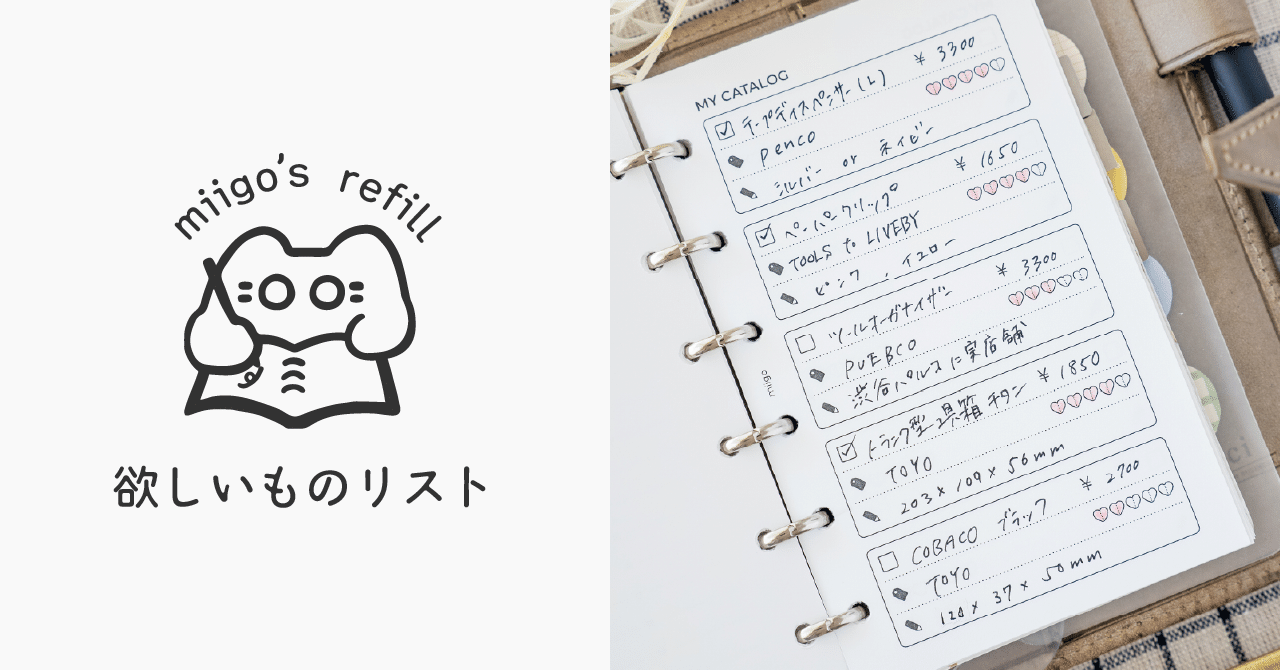 miigo's refill
欲しいものリスト
MY CATALOG
テープディスペンサー(L) ¥ 3300
penco
シルバー or ネイビー
ペーパークリップ ¥ 1650
TOOLS to LIVEBY
ピンク、イエロー
ツールオーガナイザー ¥ 3300
PUEBCO
渋谷パルコに実店舗
トランク型工具箱 チタン ¥ 1850
TOYO
203 × 109 × 56mm
COBACO ブラック ¥ 2700
TOYO
120 × 37 × 50mm
miigo